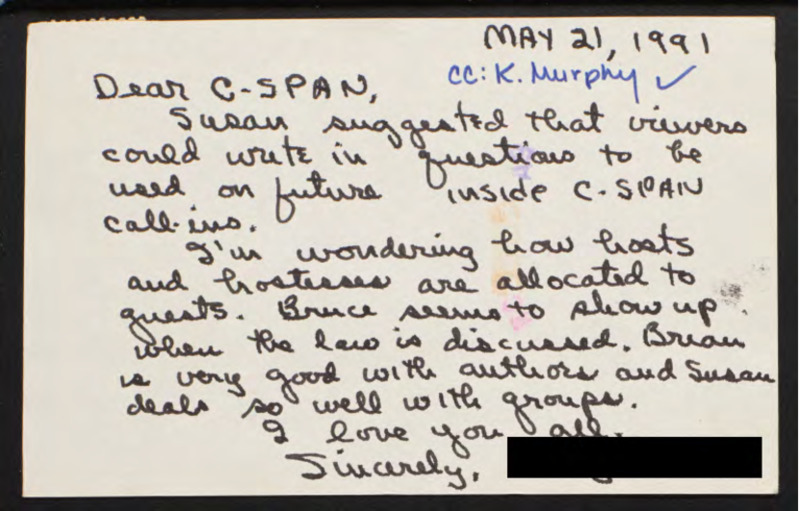 MAY 21, 1991
cc: K. Murphy ✓
Dear C-SPAN,
Susan suggested that viewers
could write in questions to be
used on future inside C-SPAN
call-ins.
I'm wondering how hosts
and hostesses are allocated to
guests. Bruce seems to show up
when the law is discussed. Brian
is very good with authors and Susan
deals so well with groups.
I love you all.
Sincerely,